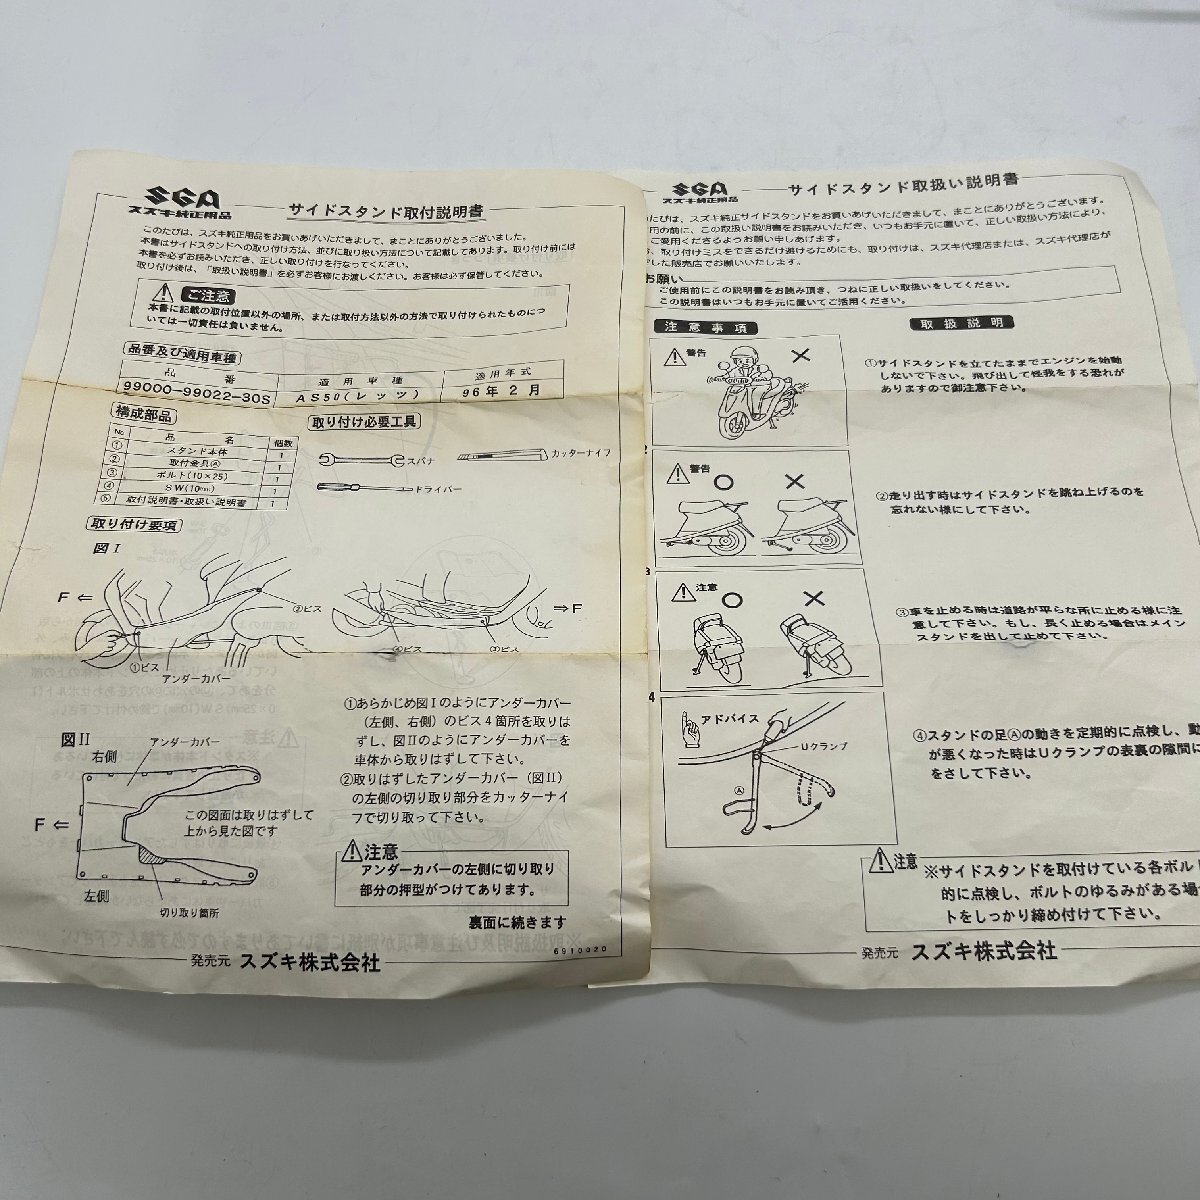 SGA
スズキ純正用品
サイドスタンド取付説明書
このたびは、スズキ純正用品をお買いあげいただきまして、まことにありがとうございました。
本書はサイドスタンドへの取り付け方法、並びに取り扱い方法について記載してあります。取り付け前には
本書を必ずお読みいただき、正しい取り付けを行なってください。
取り付け後は、「取扱い説明書」を必ずお客様にお渡しください。お客様は必ず保管してください。
ご注意
本書に記載の取付位置以外の場所、または取付方法以外の方法で取り付けられたものにつ
いては一切責任は負いません。
品番及び適用車種
品 番 適用車種 適用年式
99000-99022-30S AS50(レッツ) 96年2月
構成部品
No 品 名 個数
① スタンド本体 1
② 取付金具Ⓐ 1
③ ボルト(10×25) 1
④ SW(10mm) 1
⑤ 取付説明書・取扱い説明書 1
取り付け必要工具
スパナ
カッターナイフ
ドライバー
取り付け要項
図I
F ⇐
②ビス
①ビス
アンダーカバー
⇒F
④ビス
③ビス
図II
右側
アンダーカバー
F ⇐
この図面は取りはずして
上から見た図です
左側
切り取り箇所
①あらかじめ図Iのようにアンダーカバー
(左側、右側)のビス4箇所を取りは
ずし、図IIのようにアンダーカバーを
車体から取りはずして下さい。
②取りはずしたアンダーカバー(図II)
の左側の切り取り部分をカッターナイ
フで切り取って下さい。
注意
アンダーカバーの左側に切り取り
部分の押型がつけてあります。
裏面に続きます
発売元 スズキ株式会社
6910020
SGA
スズキ純正用品
サイドスタンド取扱い説明書
たびは、スズキ純正サイドスタンドをお買いあげいただきまして、まことにありがとうございます。
用の前に、この取扱い説明書をお読みいただき、いつもお手元に置いて、正しい取扱い方法により、
ご愛用くださるようお願い申しあげます。
、取り付けミスをできるだけ避けるためにも、取り付けは、スズキ代理店または、スズキ代理店が
した販売店でお願いいたします。
お願い
ご使用前にこの説明書をお読み頂き、つねに正しい取扱いをしてください。
この説明書はいつもお手元に置いてご活用ください。
注意事項
取扱説明
警告
①サイドスタンドを立てたままでエンジンを始動
しないで下さい。飛び出して怪我をする恐れが
ありますので御注意下さい。
2
警告
②走り出す時はサイドスタンドを跳ね上げるのを
忘れない様にして下さい。
3
注意
③車を止める時は道路が平らな所に止める様に注
意して下さい。もし、長く止める場合はメイン
スタンドを出して止めて下さい。
4
アドバイス
Uクランプ
Ⓐ
④スタンドの足Ⓐの動きを定期的に点検し、動
が悪くなった時はUクランプの表裏の隙間に
をさして下さい。
注意
※サイドスタンドを取付けている各ボルト
的に点検し、ボルトのゆるみがある場合
トをしっかり締め付けて下さい。
発売元 スズキ株式会社